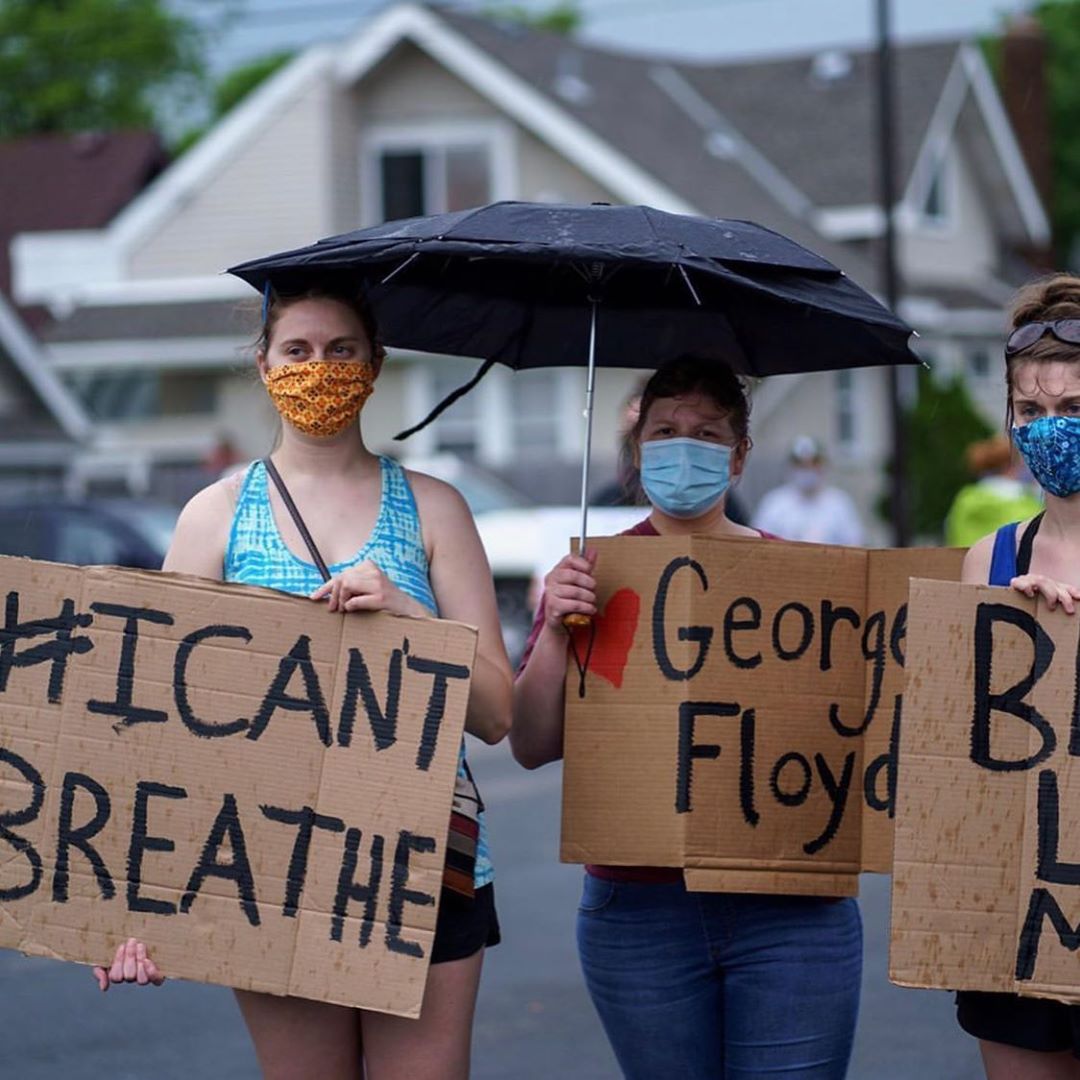 #I CAN'T
BREATHE
George
Floyd
B
L
M